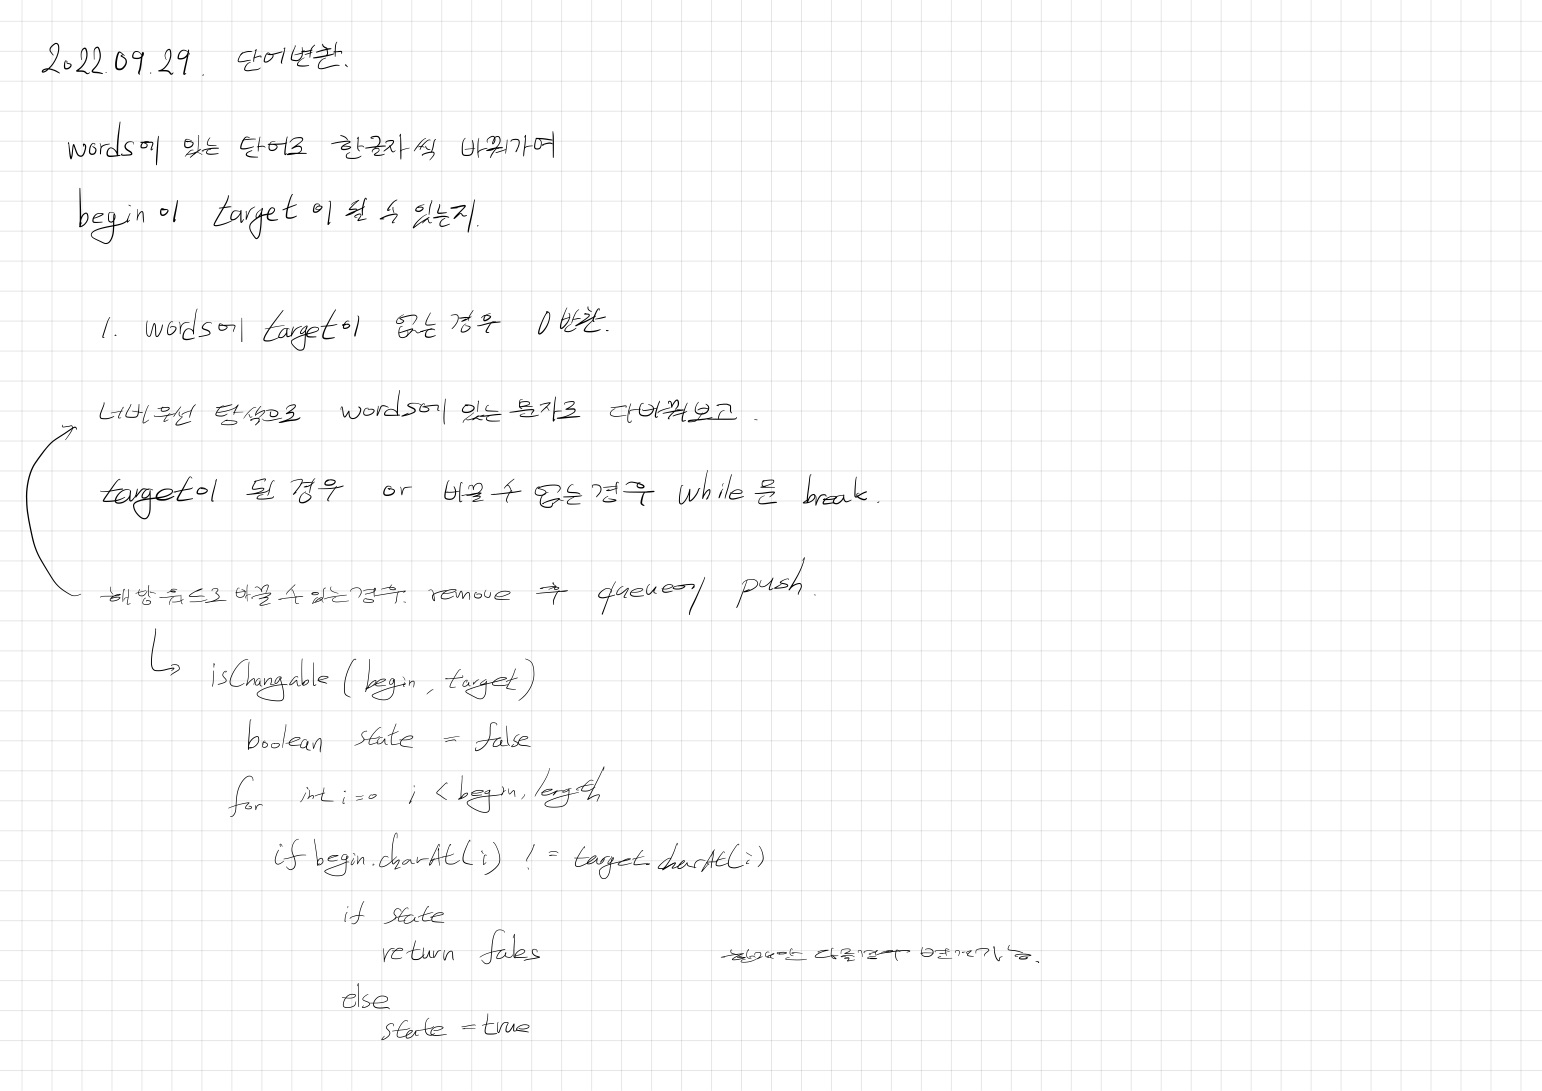 2022.09.29. 단어변환.
words에 있는 단어로 한글자씩 바꿔가여
begin이 target이 될 수 있는지.
1. words에 target이 없는 경우 0 반환.
너비우선 탐색으로 words에 있는 문자로 다바꿔보고.
target이 된 경우 or 바꿀 수 없는 경우 while문 break.
해당 워드로 바꿀 수 있는경우. remove 후 queue에 push.
isChangable (begin, target)
boolean state = false
for int i=0 i < begin.length
if begin.charAt(i) != target.charAt(i)
if state
return fales
한개만 다를경우 변경가능.
else
state = true